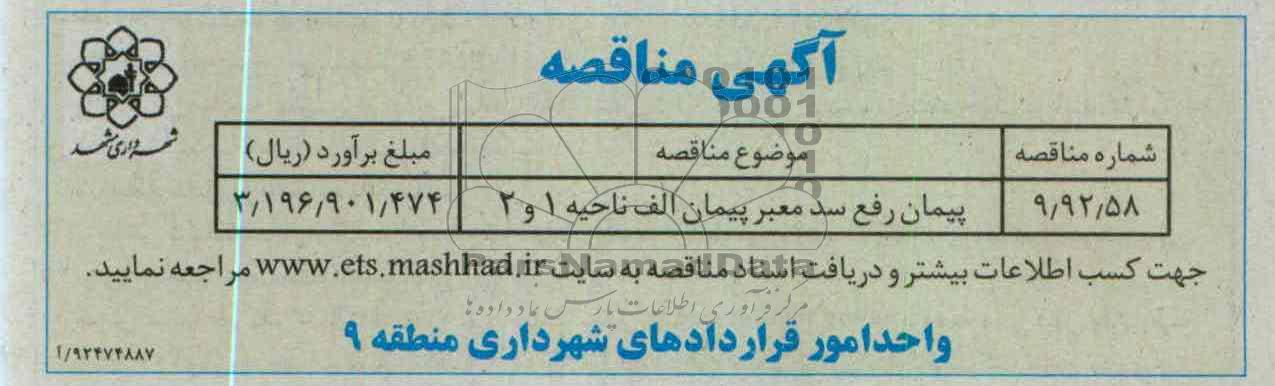 آگهی مناقصه
شهرداری مشهد
شماره مناقصه موضوع مناقصه مبلغ برآورد (ریال)
۹٫۹۲٫۵۸ پیمان رفع سد معبر پیمان الف ناحیه ۱ و ۲ ۳٫۱۹۶٫۹۰۱٫۴۷۴
جهت کسب اطلاعات بیشتر و دریافت اسناد مناقصه به سایت www.ets.mashhad.ir مراجعه نمایید.
ParsNamadData
مرکز فرآوری اطلاعات پارس نماد داده ها
واحد امور قراردادهای شهرداری منطقه ۹
۹۲۴۷۴۸۸۷/آ